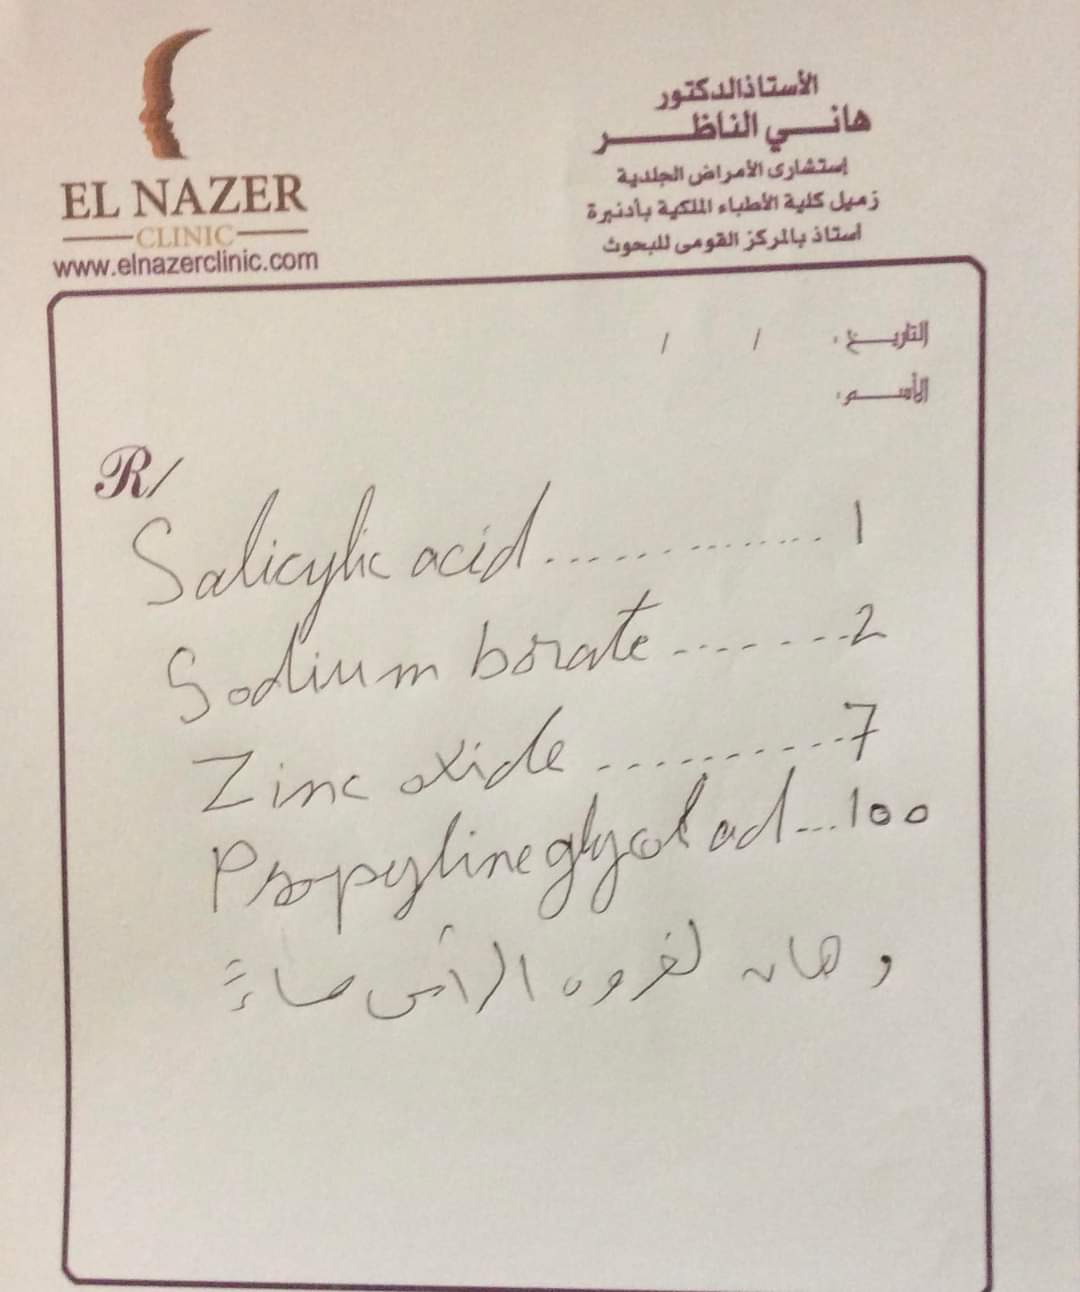 EL NAZER
CLINIC
www.elnazerclinic.com
الأستاذالدكتور
هاني الناظر
إستشارى الأمراض الجلدية
زميل كلية الأطباء الملكية بأدنبرة
أستاذ بالمركز القومى للبحوث
التاريخ: / /
الأسم:
R/
Salicylic acid.............. 1
Sodium borate ....... 2
Zinc oxide .......... 7
Propylineglycol ad ... 100
دهان لفروه الرأس مساءً